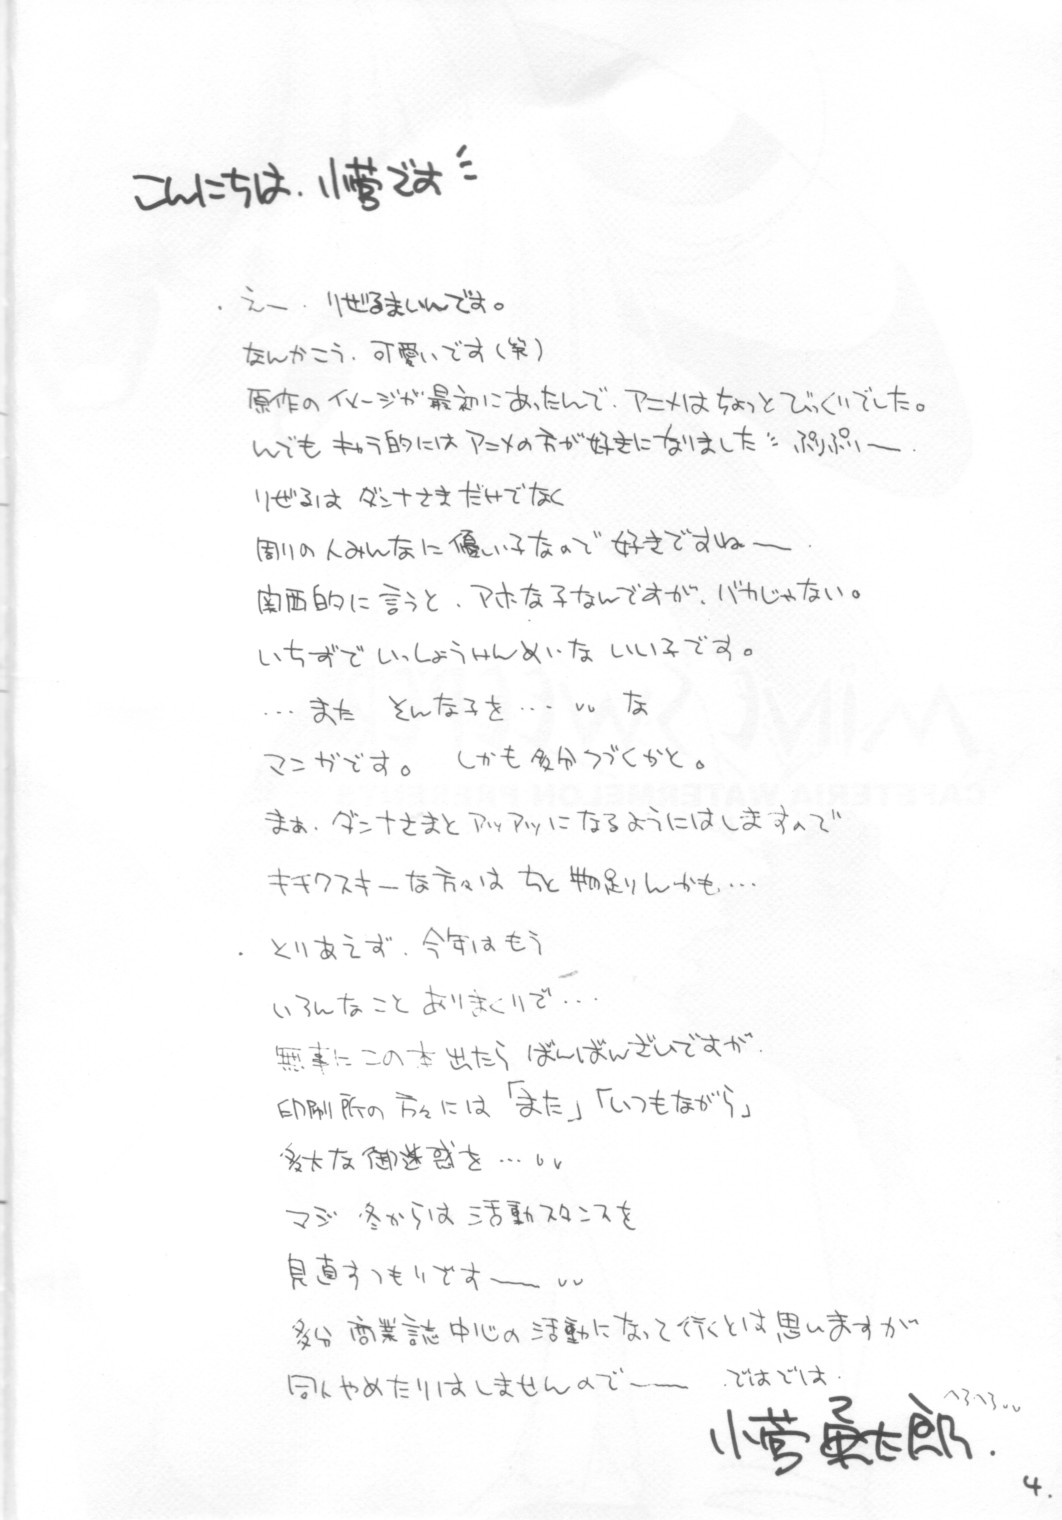 こんにちは、小菅です
・えー、りぜるまいんです。
なんかこう、可愛いです(笑)
原作のイメージが最初にあったんで、アニメはちょっとびっくりでした。
んでも キャラ的にはアニメの方が好きになりました ぷりぷりー
りぜるは ダンナさまだけでなく
周りの人みんなに優しい子なので好きですねー。
関西的に言うと、アホな子なんですが、バカじゃない。
いちずで いっしょうけんめいな いい子です。
…また そんな子を… な
マンガです。 しかも多分つづくかと。
まぁ、ダンナさまとアツアツになるようにはしますので
キチクスキーな方々は ちと物足りんかも…
・とりあえず、今年はもう
いろんなこと ありまくりで…
無事にこの本出たら ばんばんざいですが、
印刷所の方々には「また」「いつもながら」
多大な御迷惑を…
マジ 冬からは 活動スタンスを
見直すつもりですー
多分 商業誌中心の活動になって行くとは思いますが
同人やめたりはしませんのでー 、ではでは
へろへろ
小菅勇太郎.
4.
MINESWEEPER
CAFETERIA WATERMELON PRESENTS